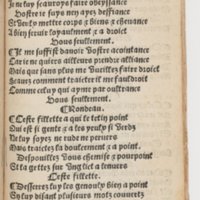 Je ne luy scauroye faire obeyssance
Vostre ie suys nen ayez deffiance
Et Vous mettre corps & biens & cheuance
A bien seruir loyaulment & a droict
Vous seullement.
Il me suffist dauoir Vostre acointance
Car ie ne quiers ailleurs prendre alliance
Mais que sans plus me Vueillez faire droict
Sceurs comment traicter il me fauldroit
Comme celuy qui ayme par oultrance
Vous seullement.
Rondeau.
Ceste fillette a qui le tetin point
Qui est si gente & a les yeulx si Vers
Ne luy soyez ne rude ne peruers
Mais traictez la doulcement & a point
Despouillez Vous chemise & pourpoint
Et la gettez sur Ung lict a lenuers
Ceste fillette.
Desserrez luy les genoulx bien a point
Et sans dilay plusieurs motz couuers